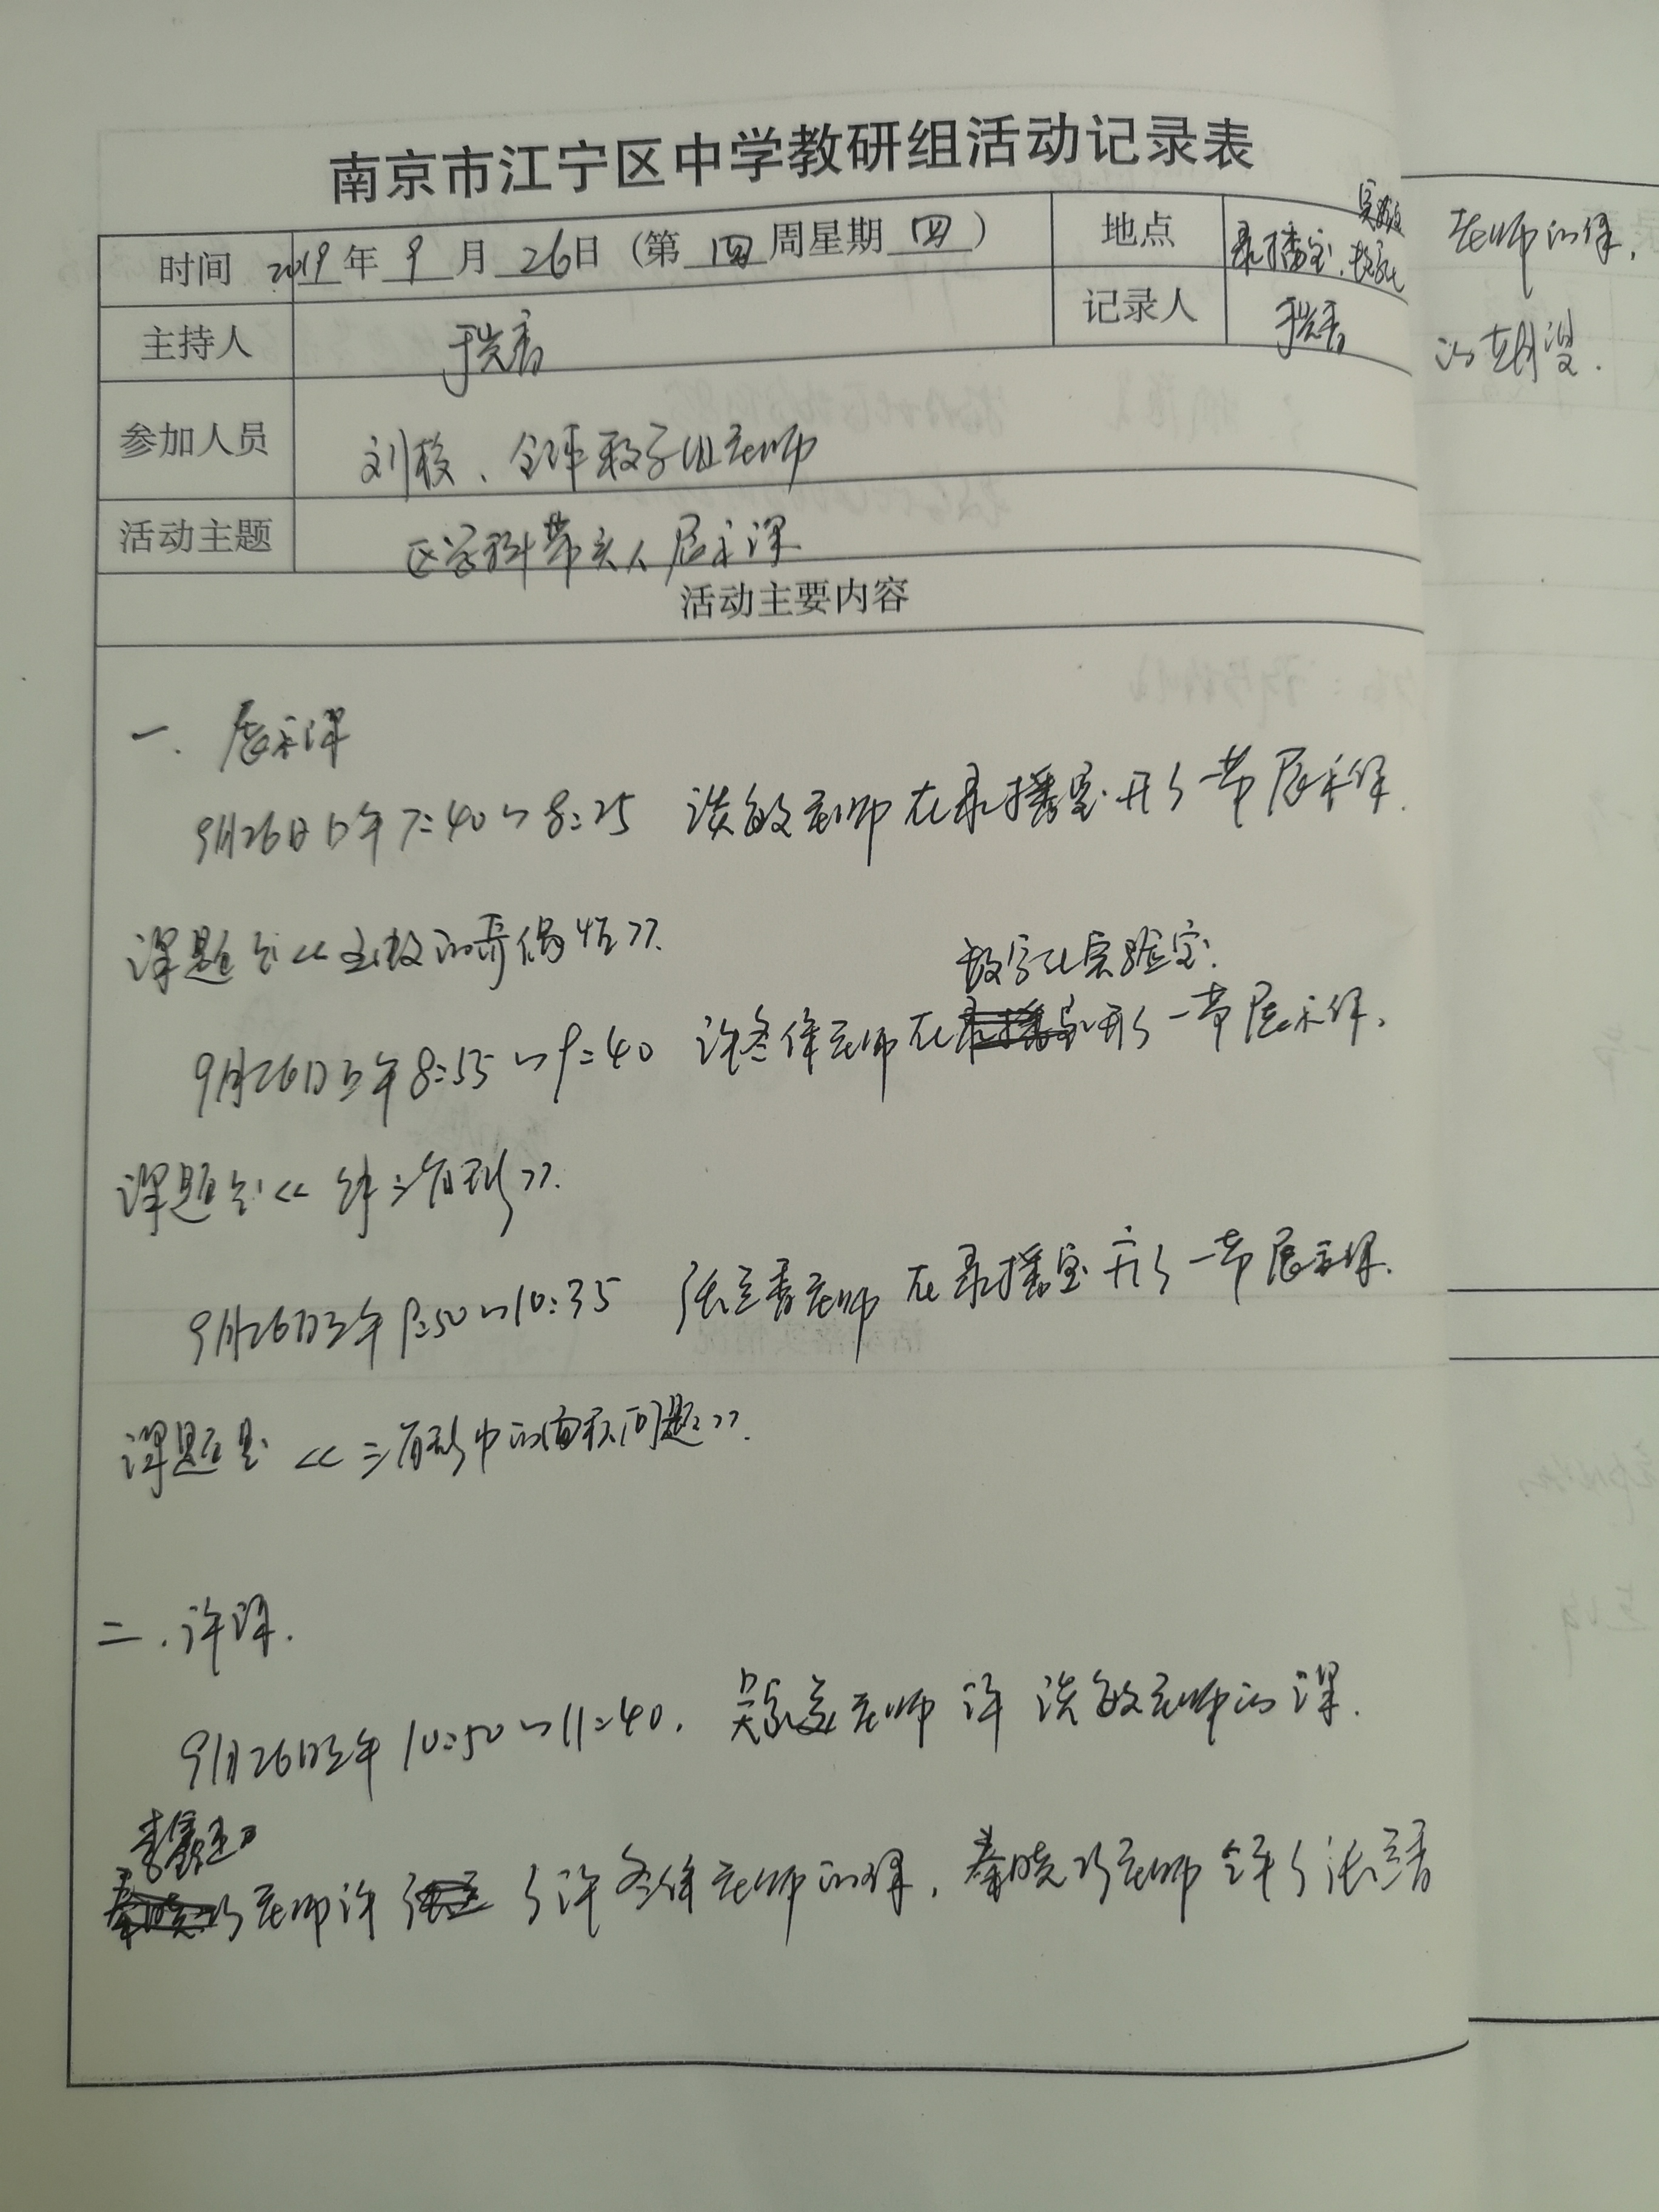 南京市江宁区中学教研组活动记录表
时间 2019年9月26日(第四周星期四) 地点 录播室、
主持人 于学香 记录人 于学香
参加人员 刘校、全体数学组老师
活动主题 区学科带头人展示课
活动主要内容
一、展示课
9月26日上午7:40~8:25 谈敏老师在录播室开了一节展示课.
课题是《函数的奇偶性》.
数字化实验室.
9月26日上午8:55~9:40 许冬保老师在开了一节展示课.
课题是《解三角形》.
9月26日上午9:50~10:35 张立香老师在录播室开了一节展示课.
课题是《三角形中的面积问题》.
二、评课.
9月26日上午10:50~11:40, 老师评谈敏老师的课.
老师评了许冬保老师的课, 秦晓巧老师评了张立香
老师的课.